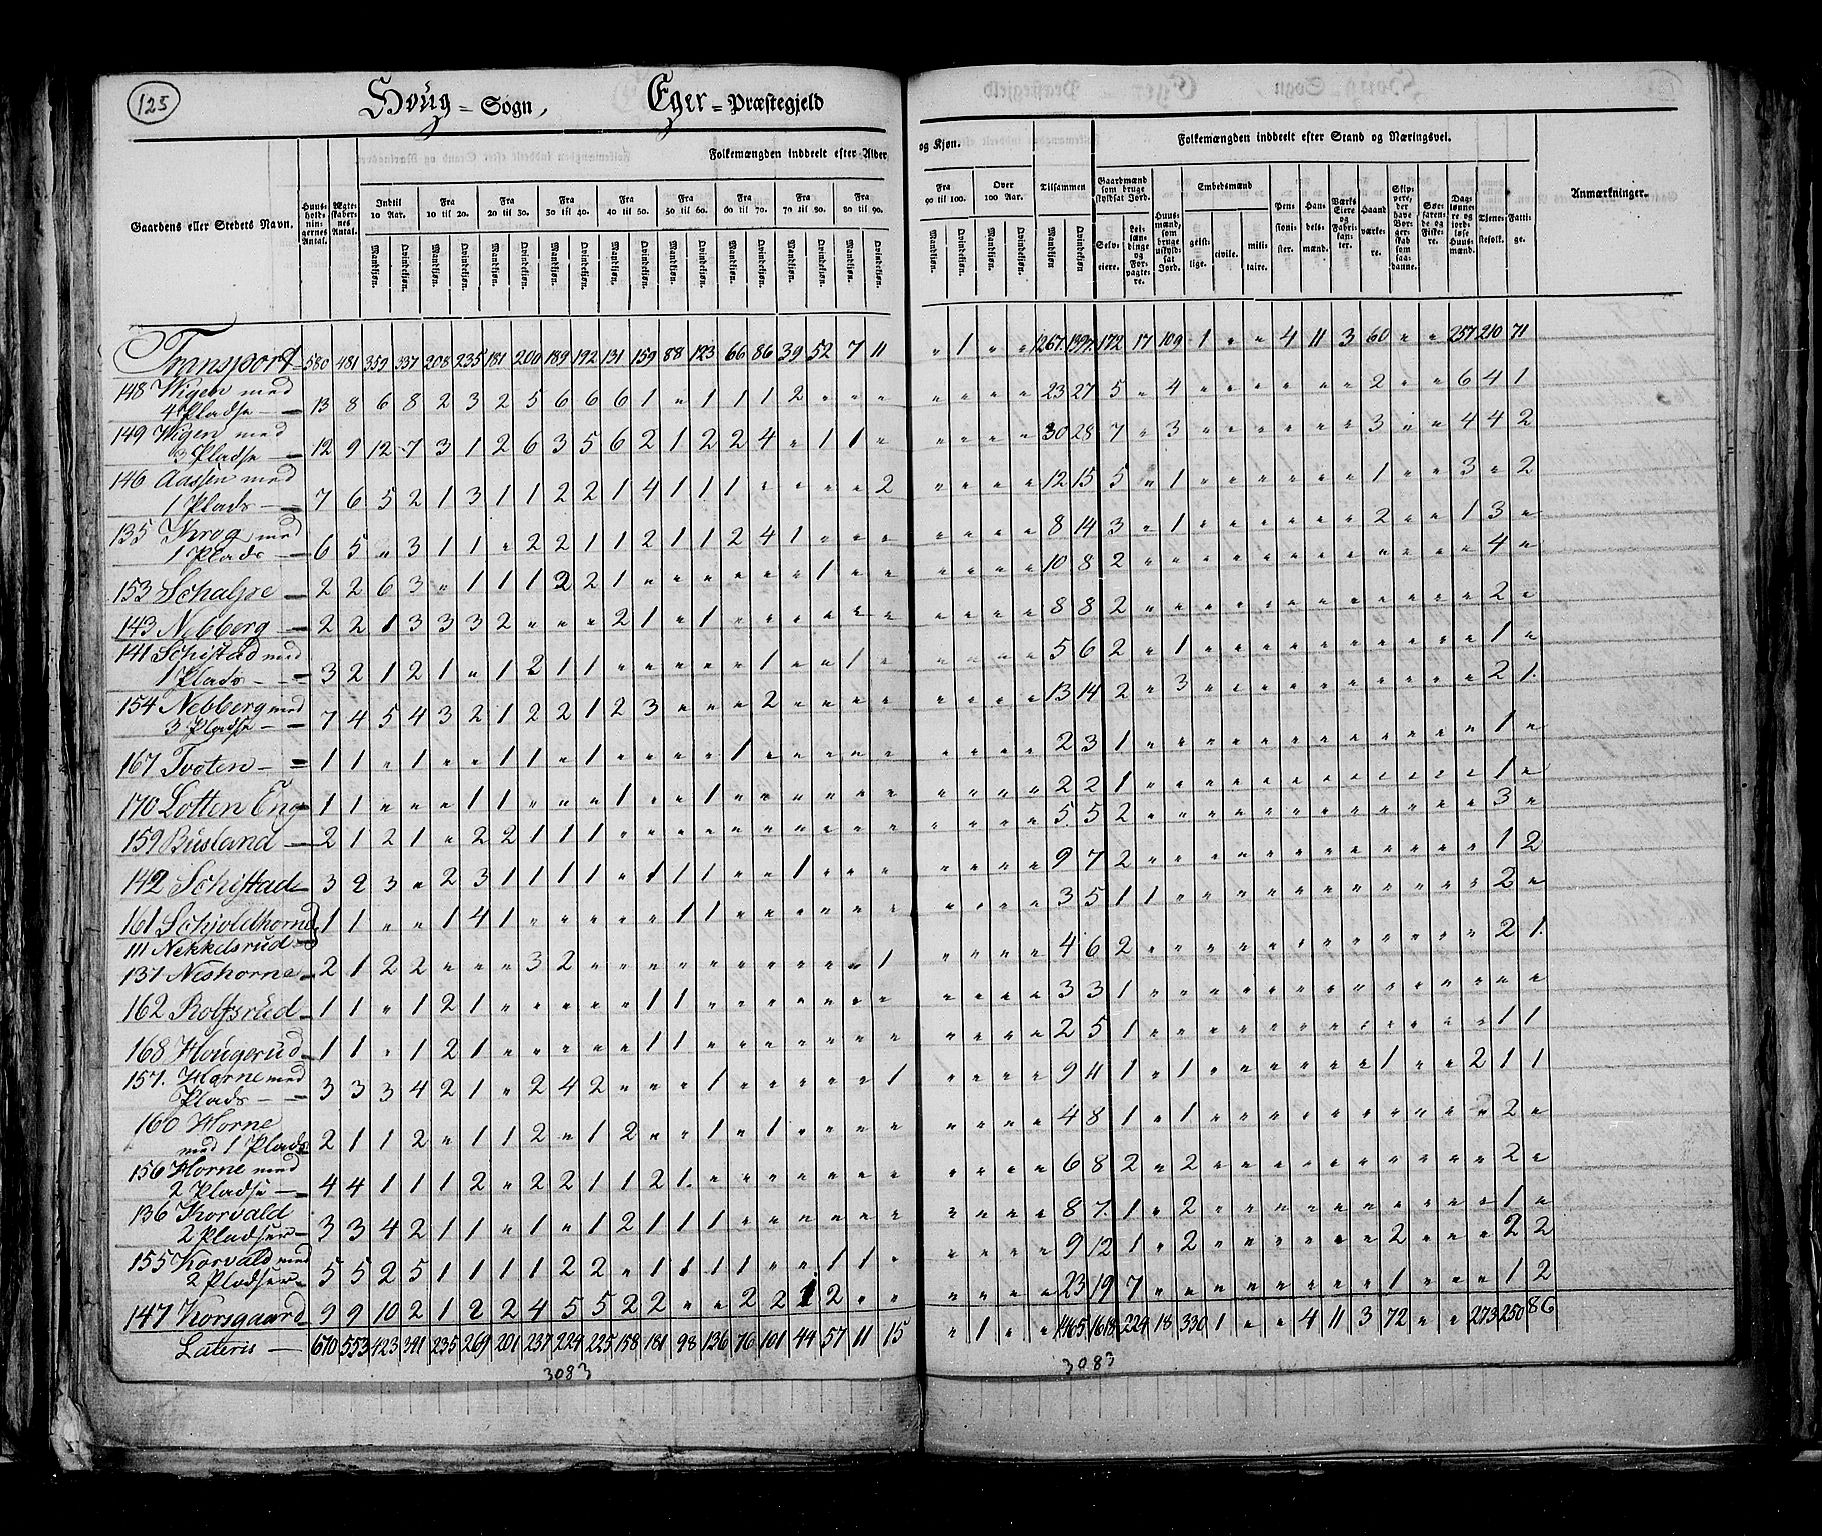 125
Houg = Sogn, Eger = Præstegjeld
Folkemængden inddeelt efter Alder og Kjøn.
Folkemængden inddeelt efter Stand og Næringsvei.
Gaardens eller Stedets Navn.
Huusholdningernes Antal.
Ægteskabernes Antal.
Indtil 10 Aar.
Fra 10 til 20.
Fra 20 til 30.
Fra 30 til 40.
Fra 40 til 50.
Fra 50 til 60.
Fra 60 til 70.
Fra 70 til 80.
Fra 80 til 90.
Fra 90 til 100.
Over 100 Aar.
Tilsammen
Mandkjøn. Qvindekjøn.
Gaardmænd som bruge skyldsat Jord.
Selveiere.
Leilændinge og Forpagtere.
Huusmænd, som bruge uskyldsat Jord.
Embedsmænd
geistlige.
civile.
militaire.
Pensionister.
Handelsmænd.
Værks Eiere og Fabrikanter.
Haandværkere.
Skippere, der have Borgerskab som saadanne.
Søefarende og Fiskere.
Daglønnere og jordløse Huusmænd.
Tjenestefolk.
Fattige.
Anmærkninger.
Transport 580 481 359 337 208 235 181 200 189 192 131 159 88 123 66 86 39 52 7 11 " 1 " " 1267 1397 172 17 109 1 " " 4 11 3 60 " " 257 210 71
148 Wigen med
4 Pladse 13 8 6 8 2 3 2 5 6 6 6 1 " 1 1 1 2 " " " " " " " 23 27 5 " 4 " " " " " " 2 " " 6 4 1
149 Wigen med
3 Pladse 12 9 12 7 3 1 2 6 3 5 6 2 1 2 2 4 " 1 1 " " " " " 30 28 7 " 3 " " " " " " 3 " " 4 4 2
146 Aassen med
1 Plads 7 6 5 2 1 3 1 1 2 2 1 4 1 1 1 1 " " " 2 " " " " 12 15 5 " 1 " " " " " " 1 " " 3 " 2
135 Krog med
1 Plads 6 5 " 3 1 1 " 2 2 1 1 2 1 1 2 4 1 " " " " " " " 8 14 3 " 1 " " " " " " 2 " " 1 3 "
153 Schalsre 2 2 6 3 " 1 1 1 2 2 1 " " " " " " 1 " " " " " " 10 8 2 " " " " " " " " " " " " 4 "
143 Nebberg 2 2 1 3 3 3 2 " " " 2 1 " 1 " " " " " " " " " " 8 8 2 " " " " " " " " " " " " 2 "
141 Schistad med
1 Plads 3 2 1 2 1 " 1 2 1 1 " " " " " 1 " " 1 " " " " " 5 6 2 " 1 " " " " " " " " " " 1 "
154 Nebberg med
3 Pladse 7 4 5 4 3 2 1 2 2 1 2 3 " " " 2 " " " " " " " " 13 14 2 " 3 " " " " " " " " " " 2 1
167 Tvoten 1 1 " 1 " " 1 1 " 1 " " " " 1 " " " " " " " " " 2 3 1 " " " " " " " " " " " " 1 "
170 Lotten Eng 1 1 " " " 1 1 " " " 1 " " 1 " " " " " " " " " " 2 2 1 " " " " " " " " " " " " 1 "
159 Busland 2 1 2 1 " 2 2 1 1 1 " " " " " " " " " " " " " " 5 5 2 " " " " " " " " " " " " 3 "
142 Schistad 3 2 3 " 2 3 1 1 1 1 " 1 1 1 " " 1 " " " " " " " 9 7 2 " " " " " " " " " " " " 1 2
161 Schjoldhorne 1 1 " " 1 4 1 " " " " " 1 1 " " " " " " " " " " 3 5 1 1 " " " " " " " " " " " 2 "
111 Nekkelsrud
137 Neshorne 2 1 2 2 " " " 3 2 " " " " " " " " " " 1 " " " " 4 6 2 " " " " " " " " " " " " 2 1
162 Rolfsrud 1 1 " 1 2 1 " " " " " 1 1 " " " " " " " " " " " 3 3 1 " " " " " " " " " " " " " "
168 Hougerud 1 1 " 1 2 1 " " " " " 1 1 " " " " " " " " " " " 2 5 1 " " " " " " " " " " " " 1 1
157. Horne med
Plads 3 3 3 4 2 1 " 2 4 2 " " " 1 " " " " " 1 " " " " 9 4 1 " 1 " " " " " " 1 " " 2 1 1
160 Horne
med 1 Plads 2 1 1 2 " 1 1 2 " 1 2 " " 1 " 1 " " " " " " " " 4 8 1 " 1 " " " " " " " " " " 2 "
156 Horne med
2 Pladse 4 4 1 1 1 2 " 2 2 1 1 2 1 " " " " " " " " " " " 6 8 2 " 2 " " " " " " " " " " 2 "
136 Korvald
2 Pladser 3 3 4 2 1 1 " 1 " 1 2 1 1 1 " " " " " " " " " " 8 7 1 " 2 " " " " " " " " " " 1 "
155 Korvald med
2 Pladser 5 5 2 5 1 1 1 1 2 2 " 1 1 1 1 " " 1 1 " " " " " 9 12 1 " 2 " " " " " " 2 " " " 2 2
147 Korsgaard 9 9 10 2 1 2 2 4 5 5 2 2 " " 2 2 1 2 " " " " " " 23 19 7 " " " " " " " " 1 " " " 1 2
Lateris 670 553 423 391 235 269 201 237 224 225 158 181 98 136 76 101 44 57 11 15 " 1 " " 1465 1618 224 18 330 1 " " 4 11 3 72 " " 273 250 86
3083 3083